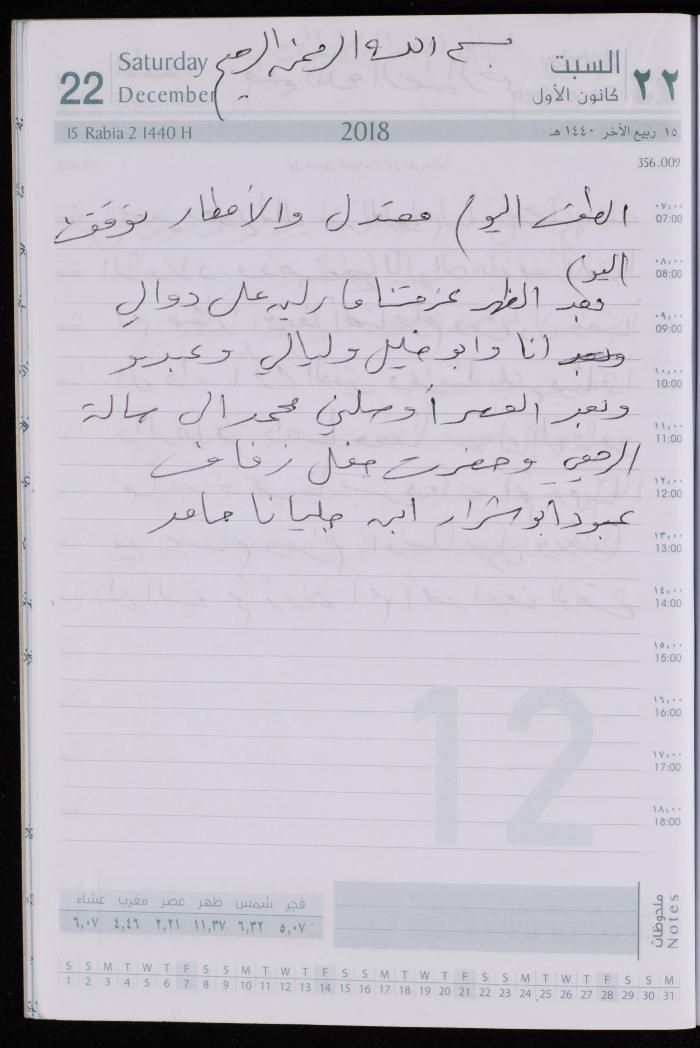 بسم الله الرحمن الرحيم
Saturday
22
December
السبت
٢٢
كانون الأول
15 Rabia 2 1440 H
2018
١٥ ربيع الآخر ١٤٤٠ هـ
356.009
الطقس اليوم معتدل والأمطار توقفت
اليوم
وبعد الظهر عزمتنا ماريه على دوالي
انا وابو خليل وليالي وعبدو
وبعد العصر أوصلني محمد الى صالة
وحضرت حفل زفاف
عبود أبو شرار ابن جليانا حامد
٠٧:٠٠
07:00
٠٨:٠٠
08:00
٠٩:٠٠
09:00
١٠:٠٠
10:00
١١:٠٠
11:00
١٢:٠٠
12:00
١٣:٠٠
13:00
١٤:٠٠
14:00
١٥:٠٠
15:00
١٦:٠٠
16:00
١٧:٠٠
17:00
١٨:٠٠
18:00
12
فجر شمس ظهر عصر مغرب عشاء
٥,٠٧ ٦,٣٢ ١١,٣٧ ٢,٢١ ٤,٤٦ ٦,٠٧
ملحوظات
Notes
S S M T W T F S S M T W T F S S M T W T F S S M T W T F S S M
1 2 3 4 5 6 7 8 9 10 11 12 13 14 15 16 17 18 19 20 21 22 23 24 25 26 27 28 29 30 31